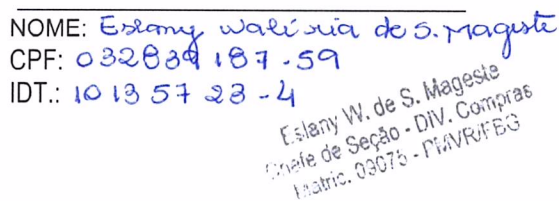 NOME: Eslany Waléria de S. Mageste
CPF: 032839187-59
IDT.: 10135723-4
Eslany W. de S. Mageste
Chefe de Seção - DIV. Compras
Matric. 09075 - PMVR/FBG